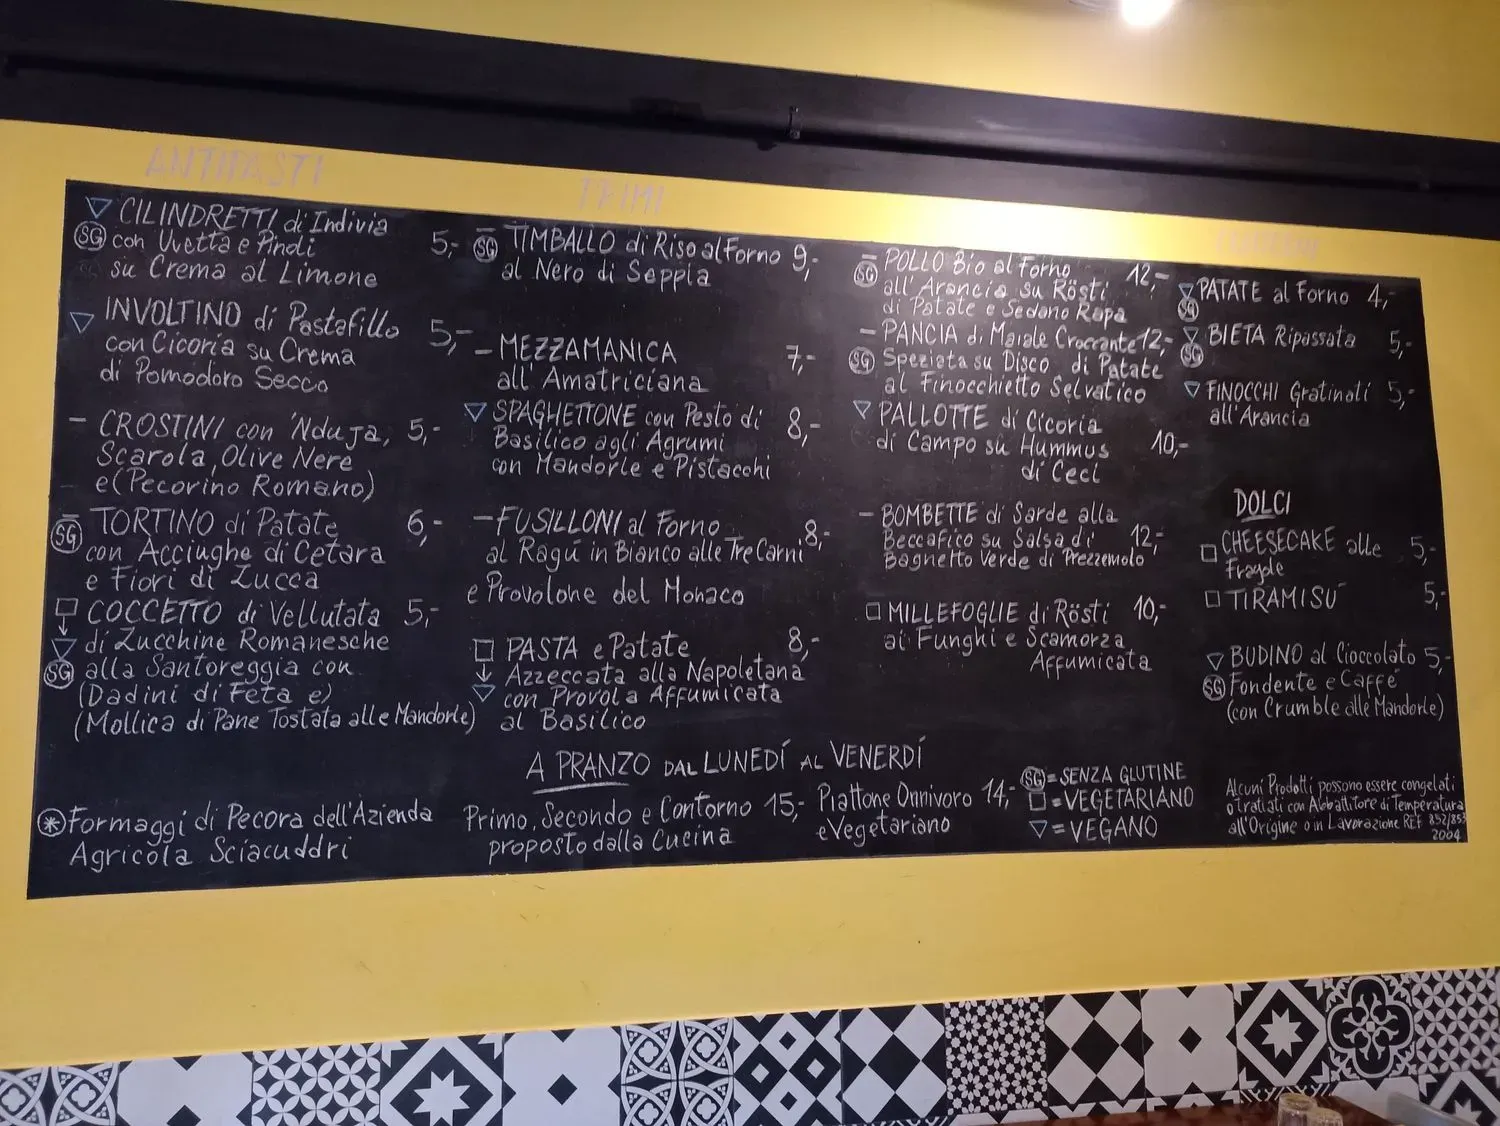 ANTIPASTI
CILINDRETTI di Indivia
SG con Uvetta e Pinoli 5,-
su Crema al Limone
INVOLTINO di Pastafillo
con Cicoria su Crema 5,-
di Pomodoro Secco
- CROSTINI con 'Nduja, 5,-
Scarola, Olive Nere
e (Pecorino Romano)
- TORTINO di Patate 6,-
SG con Acciughe di Cetara
e Fiori di Zucca
COCCETTO di Vellutata 5,-
di Zucchine Romanesche
SG alla Santoreggia con
(Dadini di Feta e)
(Mollica di Pane Tostata alle Mandorle)
* Formaggi di Pecora dell'Azienda
Agricola Sciacuddri
PRIMI
- TIMBALLO di Riso al Forno 9,-
SG al Nero di Seppia
- MEZZAMANICA 7,-
all'Amatriciana
SPAGHETTONE con Pesto di 8,-
Basilico agli Agrumi
con Mandorle e Pistacchi
- FUSILLONI al Forno 8,-
al Ragú in Bianco alle Tre Carni
e Provolone del Monaco
PASTA e Patate 8,-
Azzeccata alla Napoletana
con Provola Affumicata
al Basilico
- POLLO Bio al Forno 12,-
SG all'Arancia su Rösti
di Patate e Sedano Rapa
- PANCIA di Maiale Croccante 12,-
SG Speziata su Disco di Patate
al Finocchietto Selvatico
PALLOTTE di Cicoria
di Campo su Hummus 10,-
di Ceci
- BOMBETTE di Sarde alla
Beccafico su Salsa di 12,-
Bagnetto Verde di Prezzemolo
MILLEFOGLIE di Rösti 10,-
ai Funghi e Scamorza
Affumicata
PATATE al Forno 4,-
SG
BIETA Ripassata 5,-
SG
FINOCCHI Gratinati 5,-
all'Arancia
DOLCI
CHEESECAKE alle 5,-
Fragole
TIRAMISÚ 5,-
BUDINO al Cioccolato 5,-
SG Fondente e Caffé
(con Crumble alle Mandorle)
A PRANZO DAL LUNEDÍ AL VENERDÍ
Primo, Secondo e Contorno 15,-
proposto dalla Cucina
Piattone Onnivoro 14,-
e Vegetariano
SG = SENZA GLUTINE
= VEGETARIANO
= VEGANO
Alcuni Prodotti possono essere congelati
o trattati con Abbattitore di Temperatura
all'Origine o in Lavorazione REF 852/853
2004